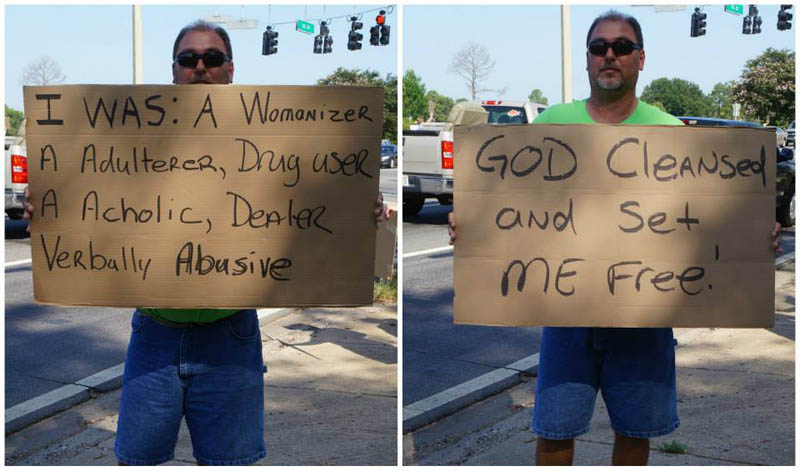 I WAS: A Womanizer
A Adulterer, Drug user
A Acholic, Dealer
Verbally Abusive
GOD Cleansed
and Set
ME Free!